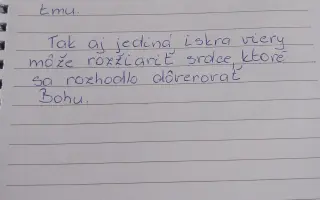 tmu.
Tak aj jediná iskra viery
môže rozžiariť srdce, ktoré
sa rozhodlo dôverovať
Bohu.